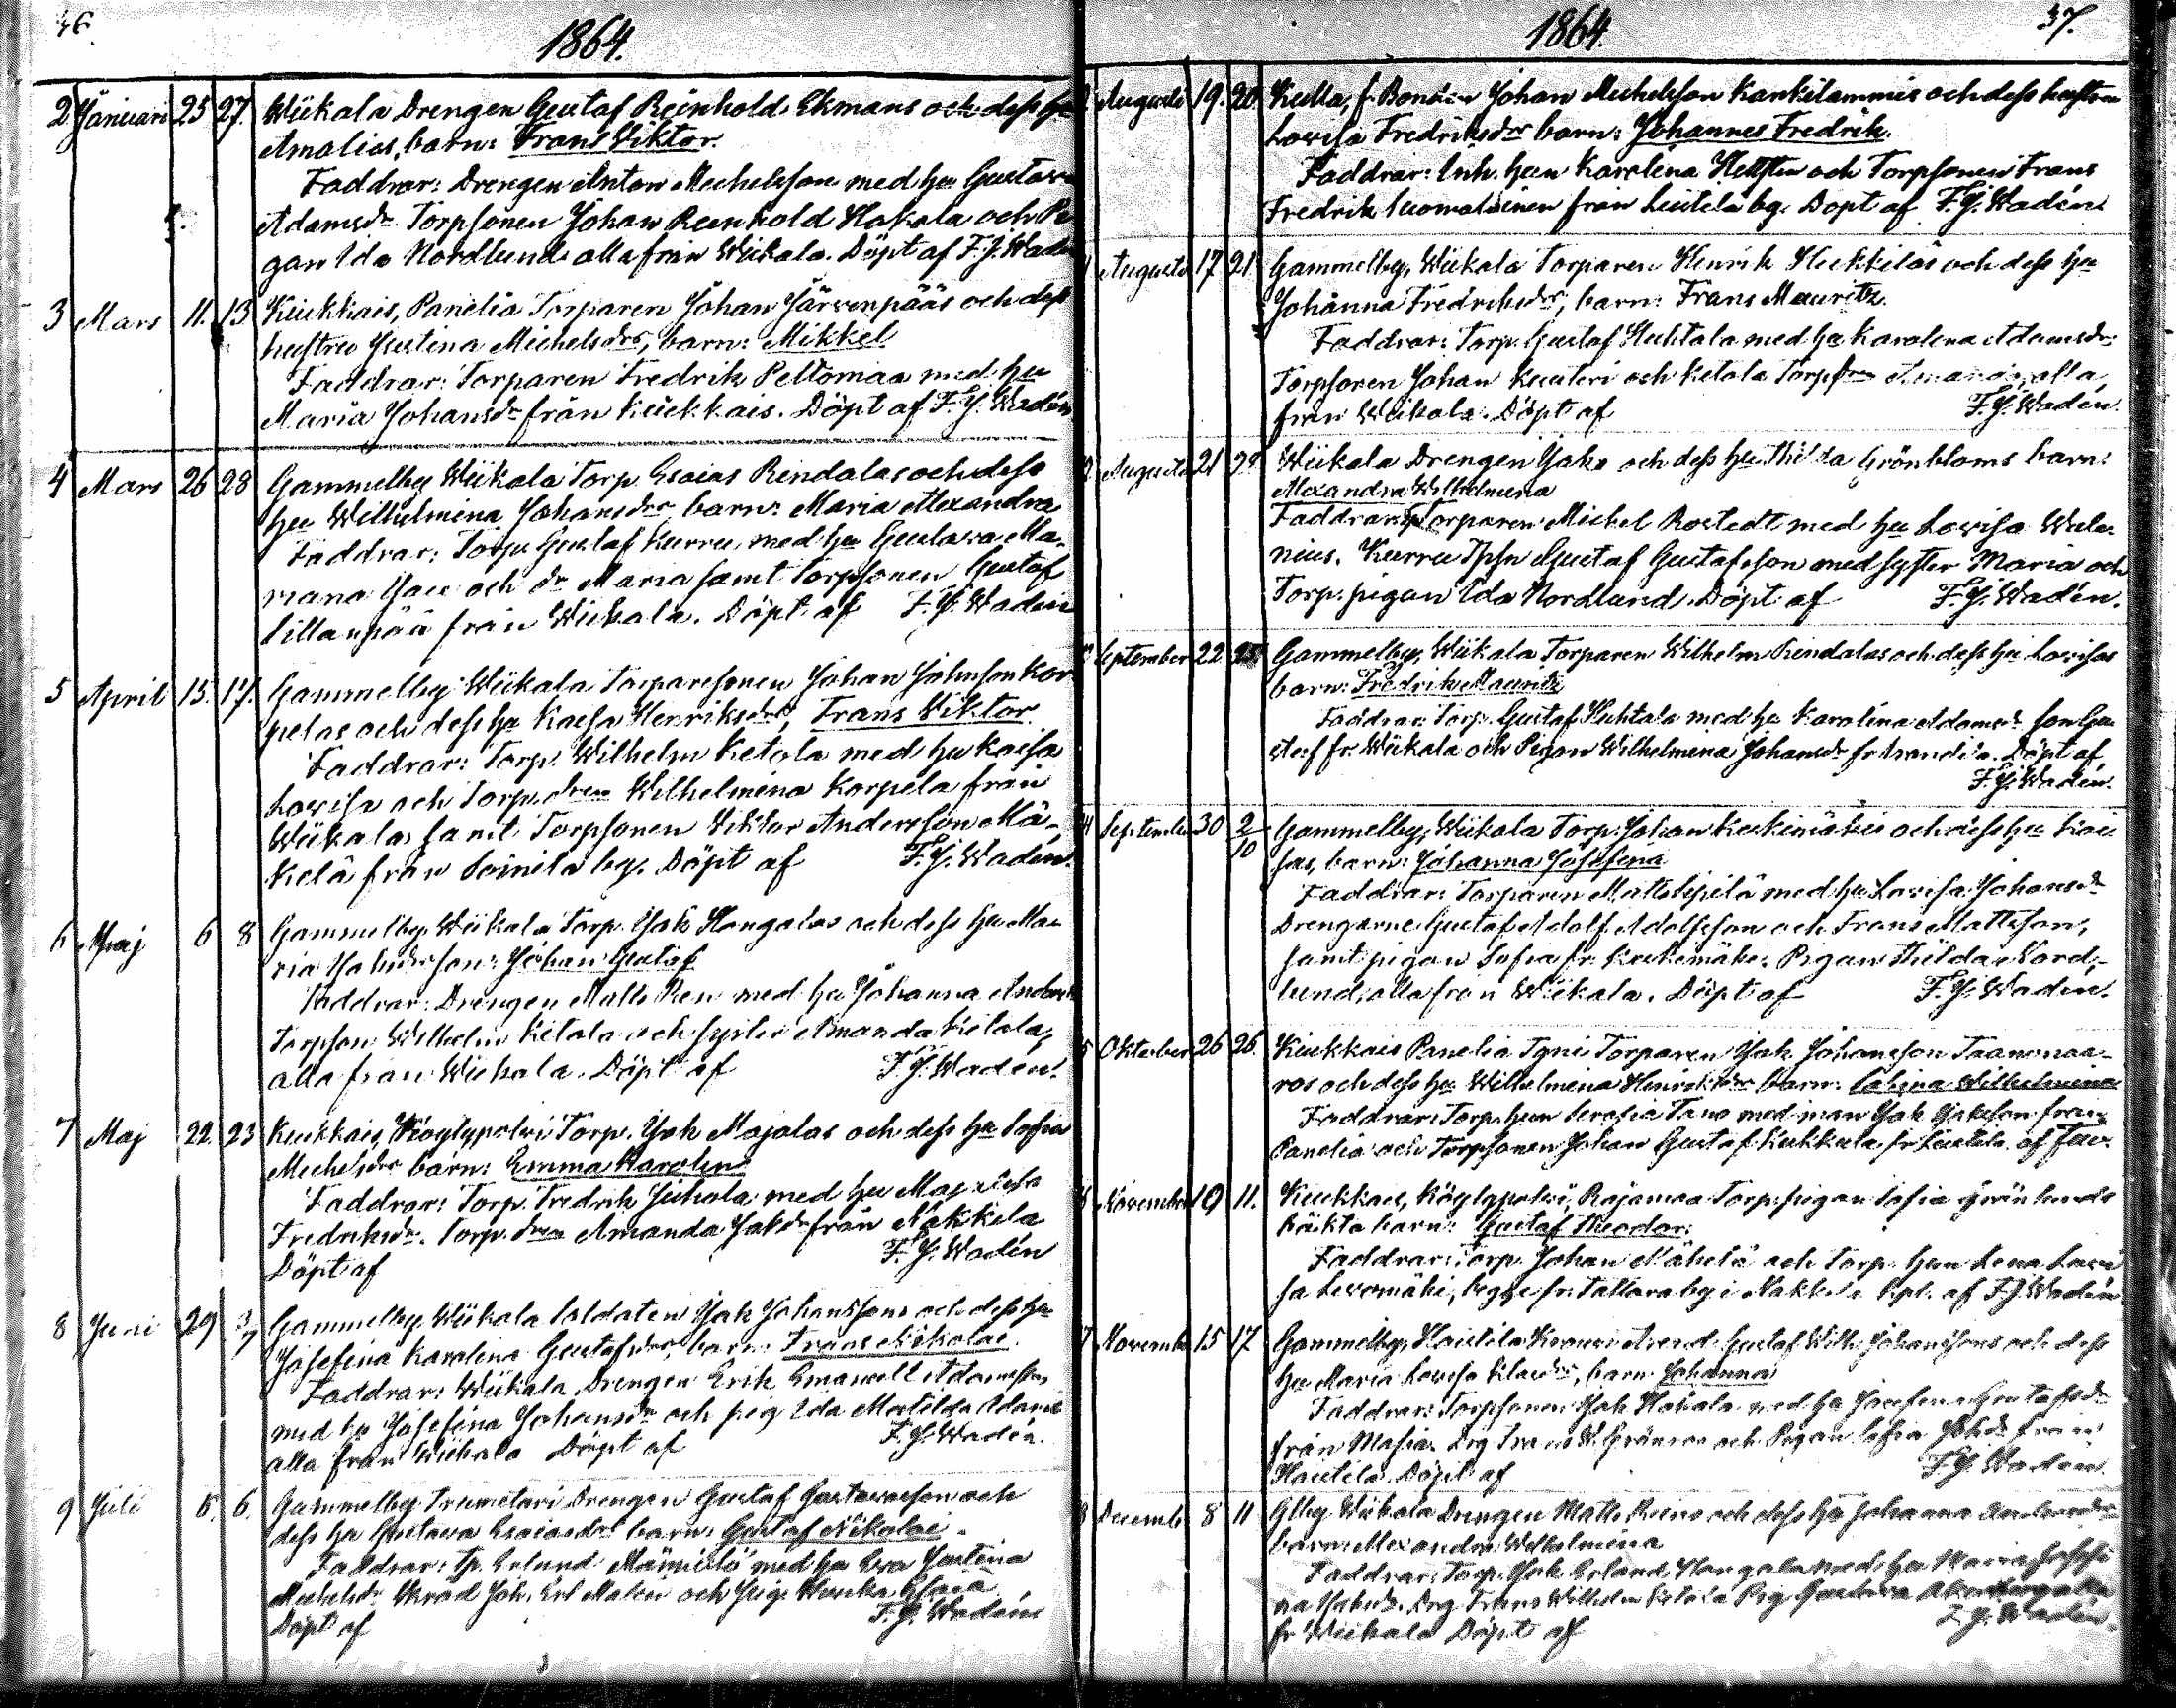 36.
1864.
2 Januari 25 27. Wiikala Drengen Gustaf Reinhold Ekmans och dess hu
Amalias, barn: Frans Viktor.
Faddrar: Drengen Anton Michelsson med hu Gustava
Adamsdr Torpsonen Johan Reinhold Hakala och Pi
gan Ida Nordlund alla från Wiikala. Döpt af F.J. Wadén
3 Mars 11. 13. Kiukkais, Panelia Torparen Johan Järvenpääs och dess
hustru Justina Michelsdrs, barn: Mikkel
Faddrar: Torparen Fredrik Peltomaa med hu
Maria Johansdr från Kiukkais. Döpt af F.J. Wadén
4 Mars 26 28 Gammelby Wiikala Torp. Esaias Rindalas och dess
hu Wilhelmina Johansdrs barn: Maria Alexandra
Faddrar: Torpn Gustaf Kurru, med hu Gustava Ma-
riana och dr Maria samt Torpsonen Gustaf
Sillanpää från Wiikala. Döpt af F.J. Wadén
5 April 15. 17. Gammelby Wiikala Torparesonen Johan Johnson Kor
pelas och dess hu Kaisa Henriksdrs, Frans Viktor
Faddrar: Torp. Wilhelm Ketala med hu Kaisa
Lovisa och Torp.dren Wilhelmina Korpela från
Wiikala samt Torpsonen Viktor Andersson Mä-
kelä från Soinila by. Döpt af F.J. Wadén.
6 Maj 6 8 Gammelby Wiikala Torp. Jak Hongalas och dess hu Ma
ria son: Johan Gustaf
Faddrar: Drengen Matts Ren med hu Johanna Anders
Torpson Wilhelm Ketala och syster Amanda Ketala,
alla från Wiikala. Döpt af F.J. Wadén.
7 Maj 22 23 Kiukkais, Köylypolvi Torp. Jak Majalas och dess hu Sofia
Michelsdrs barn: Emma Karolina
Faddrar: Torp. Fredrik Juhola med hu Maja Lisa
Fredriksdr. Torp.dren Amanda Jaksdr från Nakkila
Döpt af F.J. Wadén
8 Juni 29 3/7 Gammelby Wiikala Soldaten Jak Johanssons och dess hu
Josefina Karolina Gustafsdrs, barn: Frans Nikolai.
Faddrar: Wiikala Drengen Erik Emanuell Adamsson
med hu Josefina Johansdr och pig Ida Matilda Adams
alla från Wiikala Döpt af F.J. Wadén.
9 Juli 5. 6. Gammelby Drengen Gustaf Gustavsson och
dess hu Gustava Esaiasdrs barn: Gustaf Nikolai.
Faddrar: Tp. Erlund med hu Eva Justina
Michelsdr Skräd Joh. Erl Malin och pig
Döpt af F.J. Wadén
37.
1864.
Augusti 19. 20. Kulla, f. Bonden Johan Michelsson Kankilammis och dess hustru
Lovisa Fredriksdrs barn: Johannes Fredrik.
Faddrar: Inh. hun Karolina Hellsten och Torpsonen Frans
Fredrik Suomalainen från Leistila by. Döpt af F.J. Wadén.
Augusti 17 21 Gammelby, Wiikala Torparen Henrik Heikkiläs och dess hu
Johanna Fredriksdrs, barn: Frans Mauritz.
Faddrar: Torp. Gustaf Huhtala med hu Karolina Adamsdr
Torpsonen Johan Kuuteri och Ketala Torp.dren Amanda, alla
från Wiikala. Döpt af F.J. Wadén.
Augusti 21 Wiikala Drengen Jaks och dess hu Thilda Grönbloms barn:
Alexandra Wilhelmina
Faddrar: Torparen Mickel Rostedt med hu Lovisa Wale-
nius. Kurru Tpsn Gustaf Gustafsson med syster Maria och
Torp. pigan Ida Nordlund. Döpt af F.J. Wadén.
September 22 25 Gammelby, Wiikala Torparen Wilhelm Rindalas och dess hu Lovisas
barn: Fredrik Mauritz
Faddrar: Torp. Gustaf Huhtala med hu Karolina Adamsdr son Gu
staf fr. Wiikala och Pigan Wilhelmina Johansdr fr. Döpt af
F.J. Wadén.
September 30 2/10 Gammelby, Wiikala Torp. Johan Keskimäkis och dess hu Kai
sas, barn: Johanna Josefina
Faddrar: Torparen Matts Sjpilä med hu Lovisa Johansdr
Drengarne Gustaf Adolf Adolfsson och Frans Mattsson,
samt pigan Sofia fr. Keskimäki. Pigan Thilda Nord-
lund, alla från Wiikala. Döpt af F.J. Wadén.
Oktober 26 26. Kiukkais Panelia Torparen Jak Johansson Taanmaa-
ras och dess hu Wilhelmina Henriksdrs barn: Wilhelmina
Faddrar: Torp. hun Serafia med man Jak Jakson från
Panelia och Torpsonen Johan Gustaf Kukkula fr Leistila. af
November 9 11. Kiukkais, Köylypolvi, Rajamaa Torp. pigan Sofia Grönlunds
oäkta barn: Gustaf Theodor.
Faddrar: Torp. Johan Mäkelä och Torp. hun Lena Lovi
sa Levomäki, begge fr. Tattara by i Nakkila. Döpt af F.J. Wadén
November 15 17 Gammelby, Hautila Arend. Gustaf Wilh. Johanssons och dess
hu Maria Lovisa, barn: Johanna
Faddrar: Torpsonen Jak Hakala med hu Josefina Gustafsdr
från Masia. Drg Frans W. Grönroos och Pigan Sofia från
Hautila. Döpt af F.J. Wadén.
Decemb. 8 11 Glby Wiikala Drengen Matts Reins och dess hu Johanna
barn: Alexandra Wilhelmina
Faddrar: Torp. Jak Erland Hongala med hu Maria
Drg Frans Wilhelm Ketala Pig Gustava
fr Wiikala Döpt af F.J. Wadén.